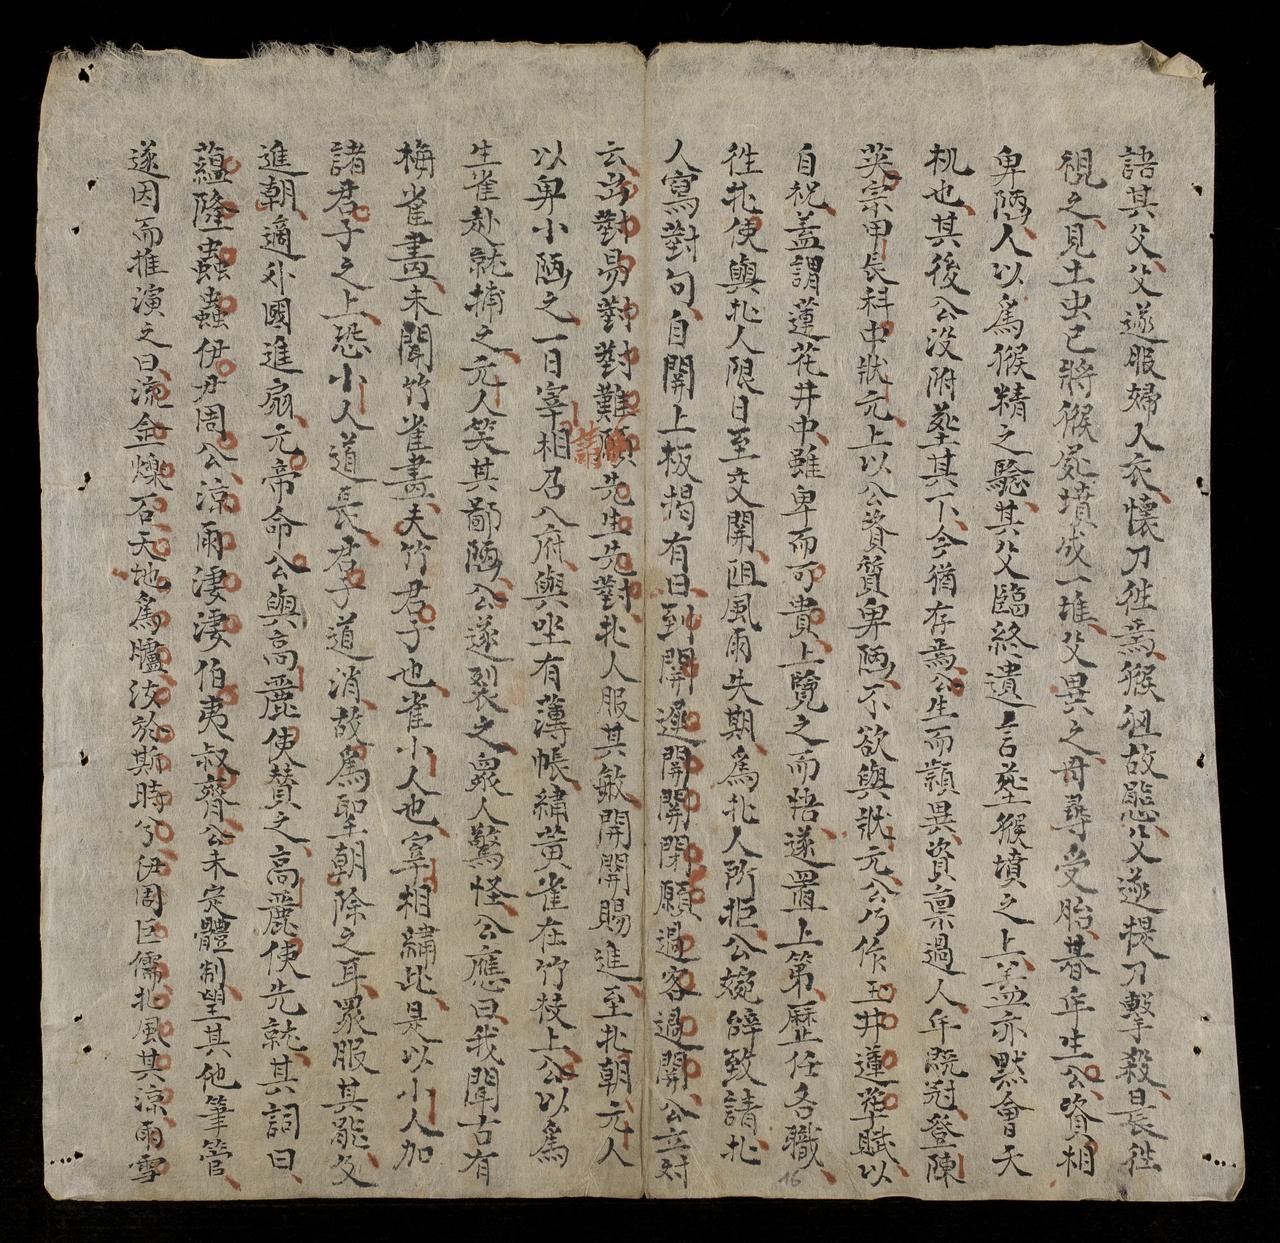 語其父父遂服婦人衣懷刀徃焉猴狃故態父遂提刀擊殺日長徃
視之見土虫已將猴屍墳成一堆父異之母尋受胎朞年生公資相
卑陋人以爲猴精之驗其父臨終遺言塟猴墳之上盖亦默會天
机也其後公没附塟其下今猶存焉公生而穎異資禀過人年既冠登陳
英宗甲辰科中狀元上以公資質卑陋不欲與狀元公乃作玉井蓮華賦以
自祝盖謂蓮花井中雖卑而可貴上覽之而悟遂置上第歷任各職
徃北使與北人限日至交関阻風雨失期爲北人所拒公婉辞致請北
人寫對句自関上板揭有曰到関遲関関閉願過客過関公立対
云出對易對對難願先生先對北人服其敏開関賜進至北朝元人
以卑小陋之一日宰相召入府與坐有薄帳繡黄雀在竹枝上公以爲
生雀赴就捕之元人笑其鄙陋公遂裂之衆人驚怪公應曰我聞古有
梅雀畫未聞竹雀畫夫竹君子也雀小人也宰相繡此是以小人加
諸君子之上恐小人道長君子道消故爲聖朝除之耳衆服其能及
進朝適外國進扇元帝命公與高麗使賛之高麗使先就其詞曰
蘊隆蟲蟲伊尹周公凉雨淒淒伯夷叔齊公未定體制望其他筆管
遂因而推演之曰流金爍石天地爲臚汝於斯時兮伊周巨儒北風其凉雨雪
第
16